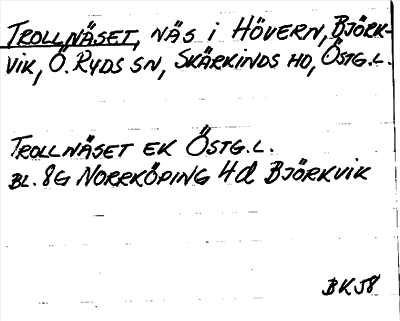 TROLLNÄSET, NÄS I HÖVERN, BJÖRK-
VIK, Ö. RYDS SN, SKÄRKINDS HD, ÖSTG.L.
TROLLNÄSET EK ÖSTG.L.
BL. 8G NORRKÖPING 4d BJÖRKVIK
BKJ8